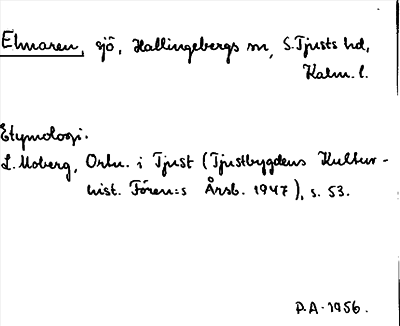 Elmaren, sjö, Hallingebergs sn, S. Tjusts hd,
Kalm. l.
Etymologi.
L. Moberg, Ortn. i Tjust (Tjustbygdens Kultur-
hist. Fören:s Årsb. 1947), s. 53.
P.A. 1956.